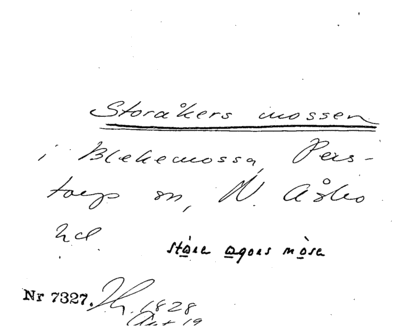 Storåkers mossen
i Blekemossa, Pers-
torps sn, N. Åsbo
hd.
stòra agors mòsa
Nr 7327. 1828
Art 19